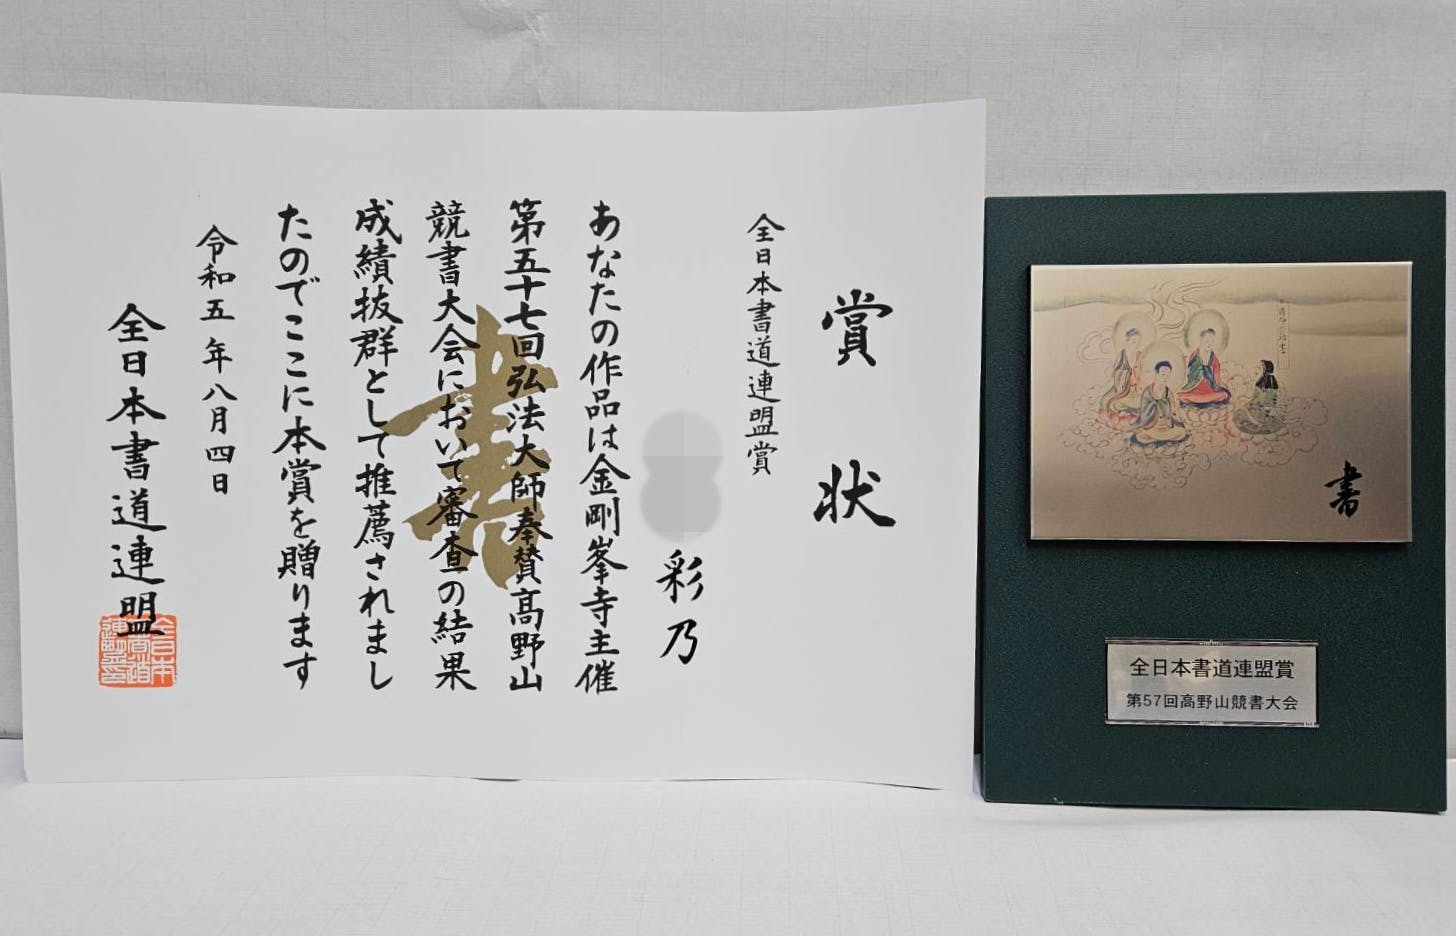 賞状
全日本書道連盟賞
彩乃
あなたの作品は金剛峯寺主催
第五十七回弘法大師奉賛高野山
競書大会において審査の結果
成績抜群として推薦されまし
たのでここに本賞を贈ります
令和五年八月四日
全日本書道連盟
書
全日本書道連盟賞
第57回高野山競書大会